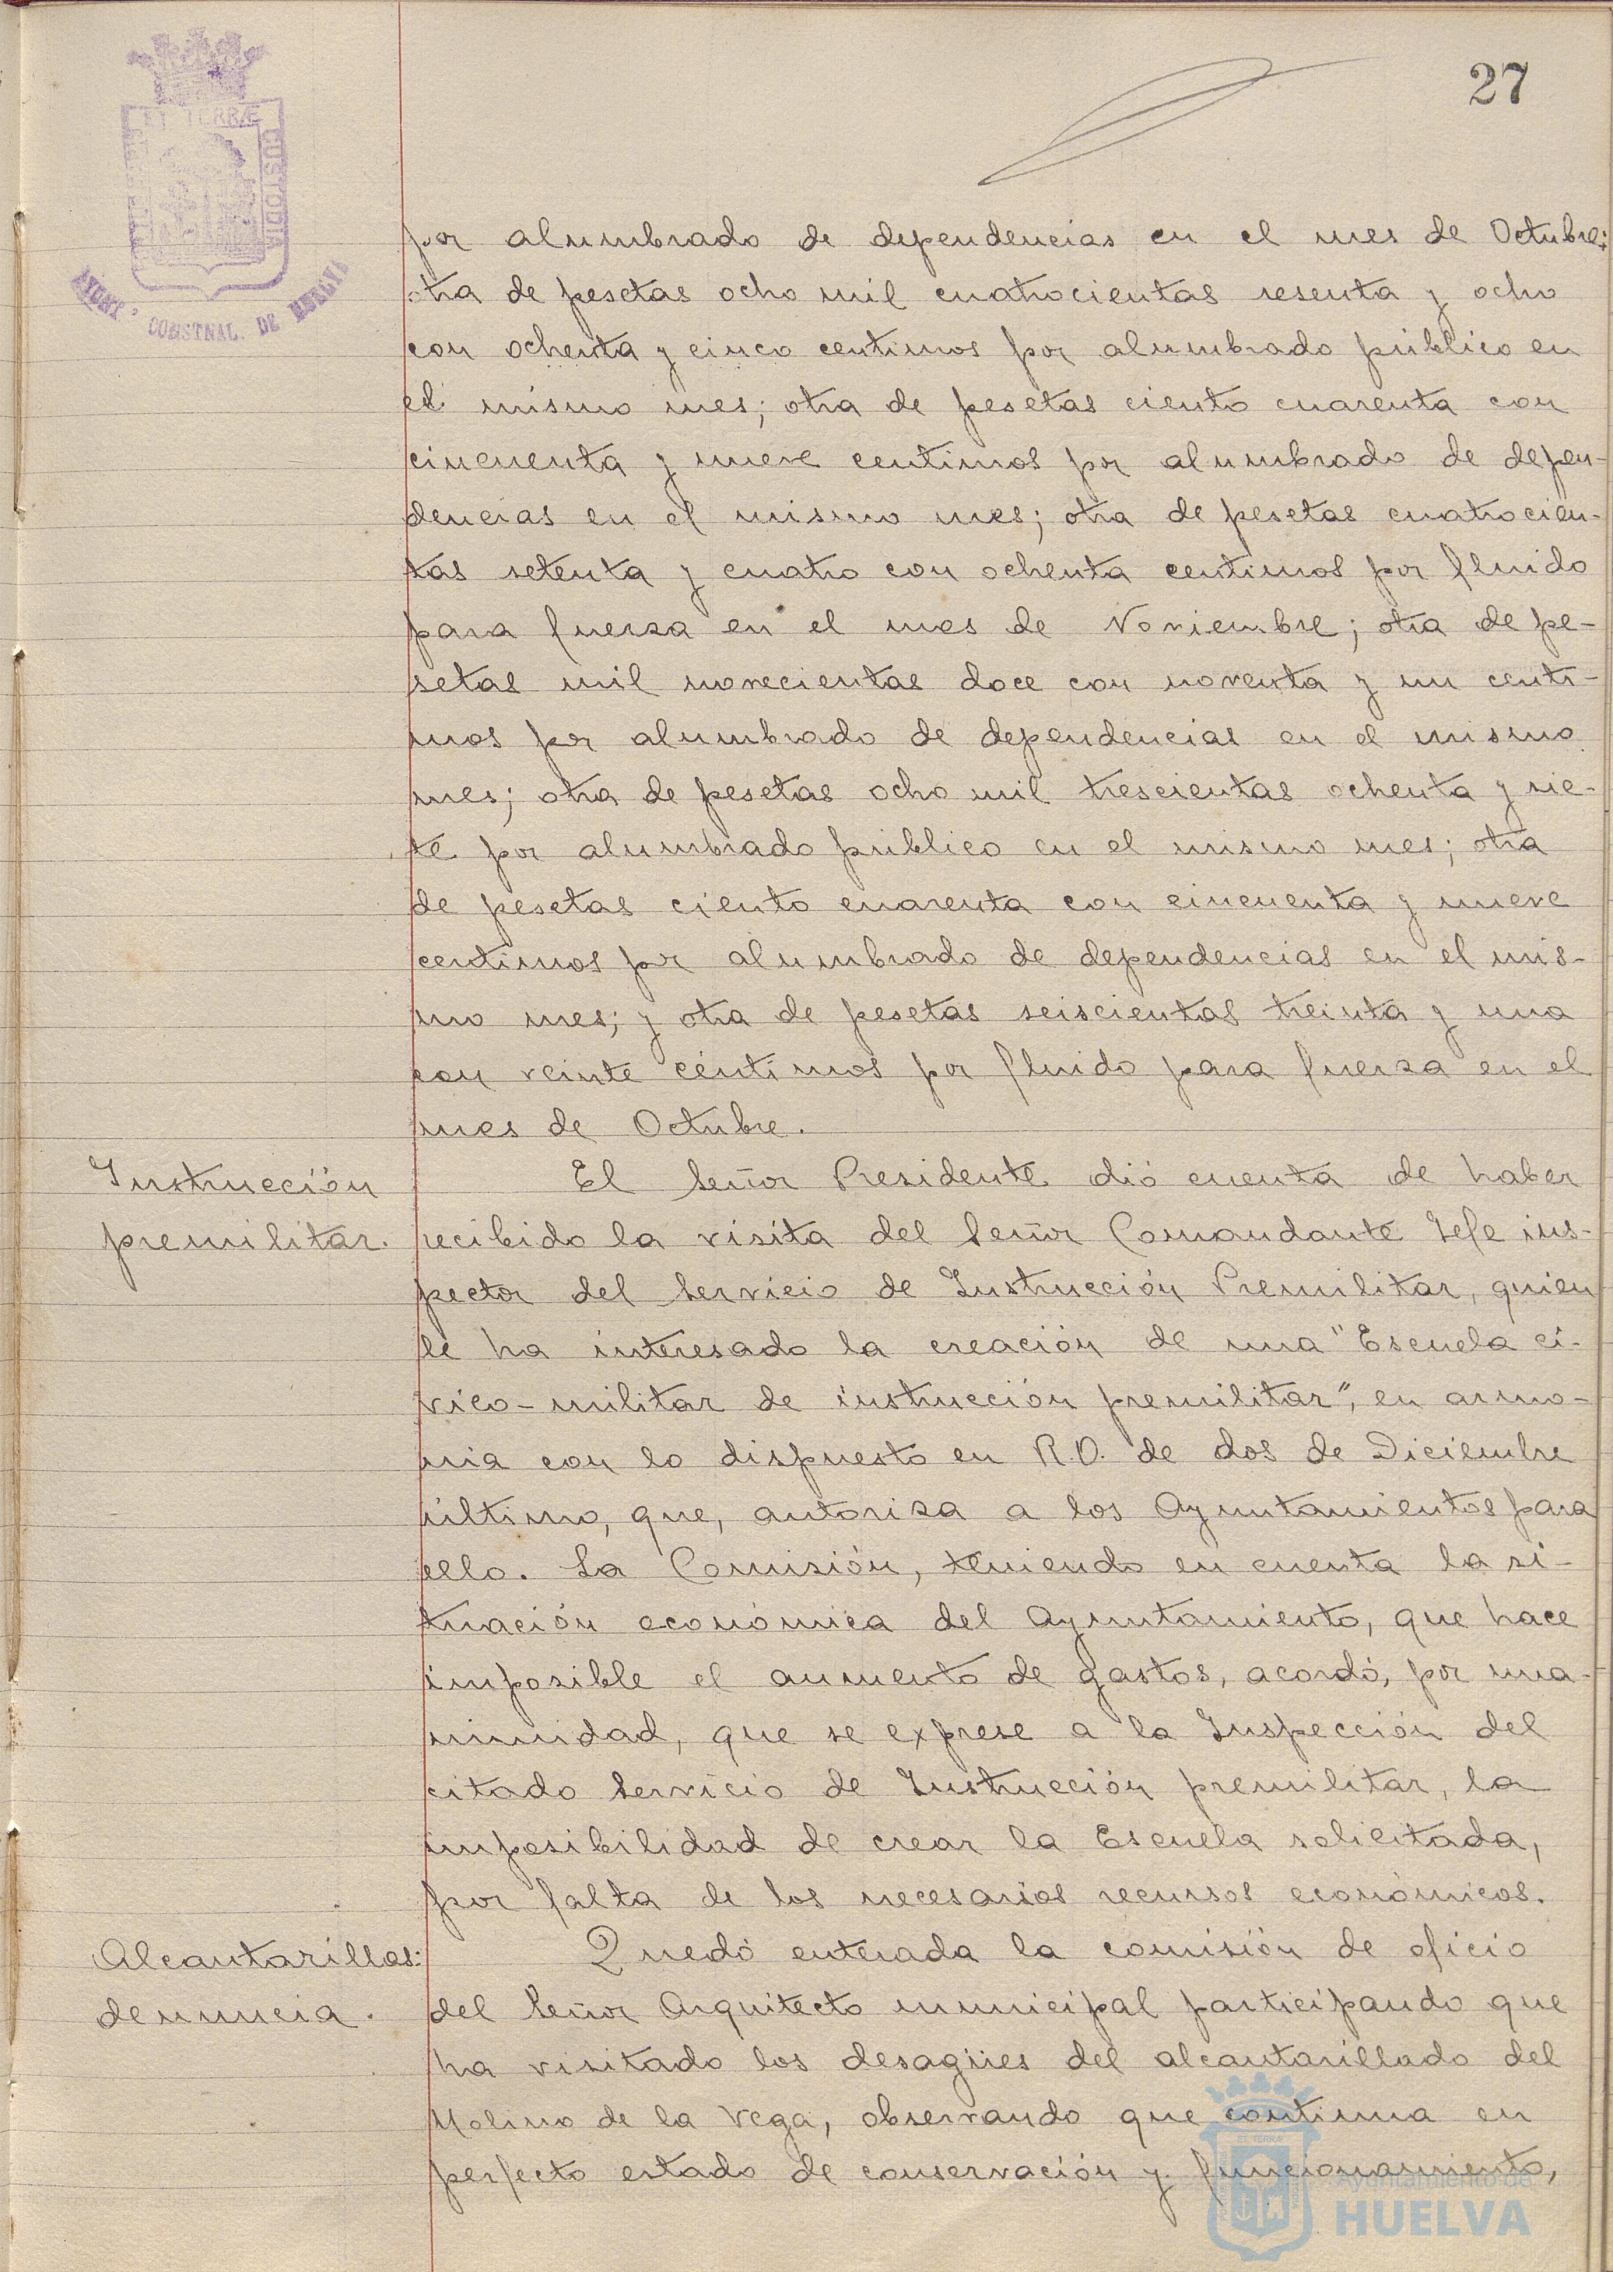 27
ET TERRÆ
CUSTODIA
AYUNT° CONSTNAL. DE HUELVA
por alumbrado de dependencias en el mes de Octubre;
otra de pesetas ocho mil cuatrocientas sesenta y ocho
con ochenta y cinco centimos por alumbrado público en
el mismo mes; otra de pesetas ciento cuarenta con
cincuenta y nueve centimos por alumbrado de depen-
dencias en el mismo mes; otra de pesetas cuatrocien-
tas setenta y cuatro con ochenta centimos por fluido
para fuerza en el mes de Noviembre; otra de pe-
setas mil novecientas doce con noventa y un centi-
mos por alumbrado de dependencias en el mismo
mes; otra de pesetas ocho mil trescientas ochenta y sie-
te por alumbrado público en el mismo mes; otra
de pesetas ciento cuarenta con cincuenta y nueve
centimos por alumbrado de dependencias en el mis-
mo mes; y otra de pesetas seiscientas treinta y una
con veinte céntimos por fluido para fuerza en el
mes de Octubre.
Instrucción
premilitar.
El Señor Presidente dió cuenta de haber
recibido la visita del Señor Comandante Jefe ins-
pector del Servicio de Instrucción Premilitar, quien
le ha interesado la creación de una "Escuela cí-
vico-militar de instrucción premilitar", en armo-
nia con lo dispuesto en R.O. de dos de Diciembre
último, que, autoriza a los Ayuntamientos para
ello. La Comisión, teniendo en cuenta la si-
tuación económica del Ayuntamiento, que hace
imposible el aumento de gastos, acordó, por una-
nimidad, que se exprese a la Inspección del
citado Servicio de Instrucción premilitar, la
imposibilidad de crear la Escuela solicitada,
por falta de los necesarios recursos económicos.
Alcantarillas:
denuncia.
Quedó enterada la comisión de oficio
del Señor Arquitecto municipal participando que
ha visitado los desagües del alcantarillado del
Molino de la Vega, observando que continua en
perfecto estado de conservación y funcionamiento,
Ayuntamiento de
HUELVA